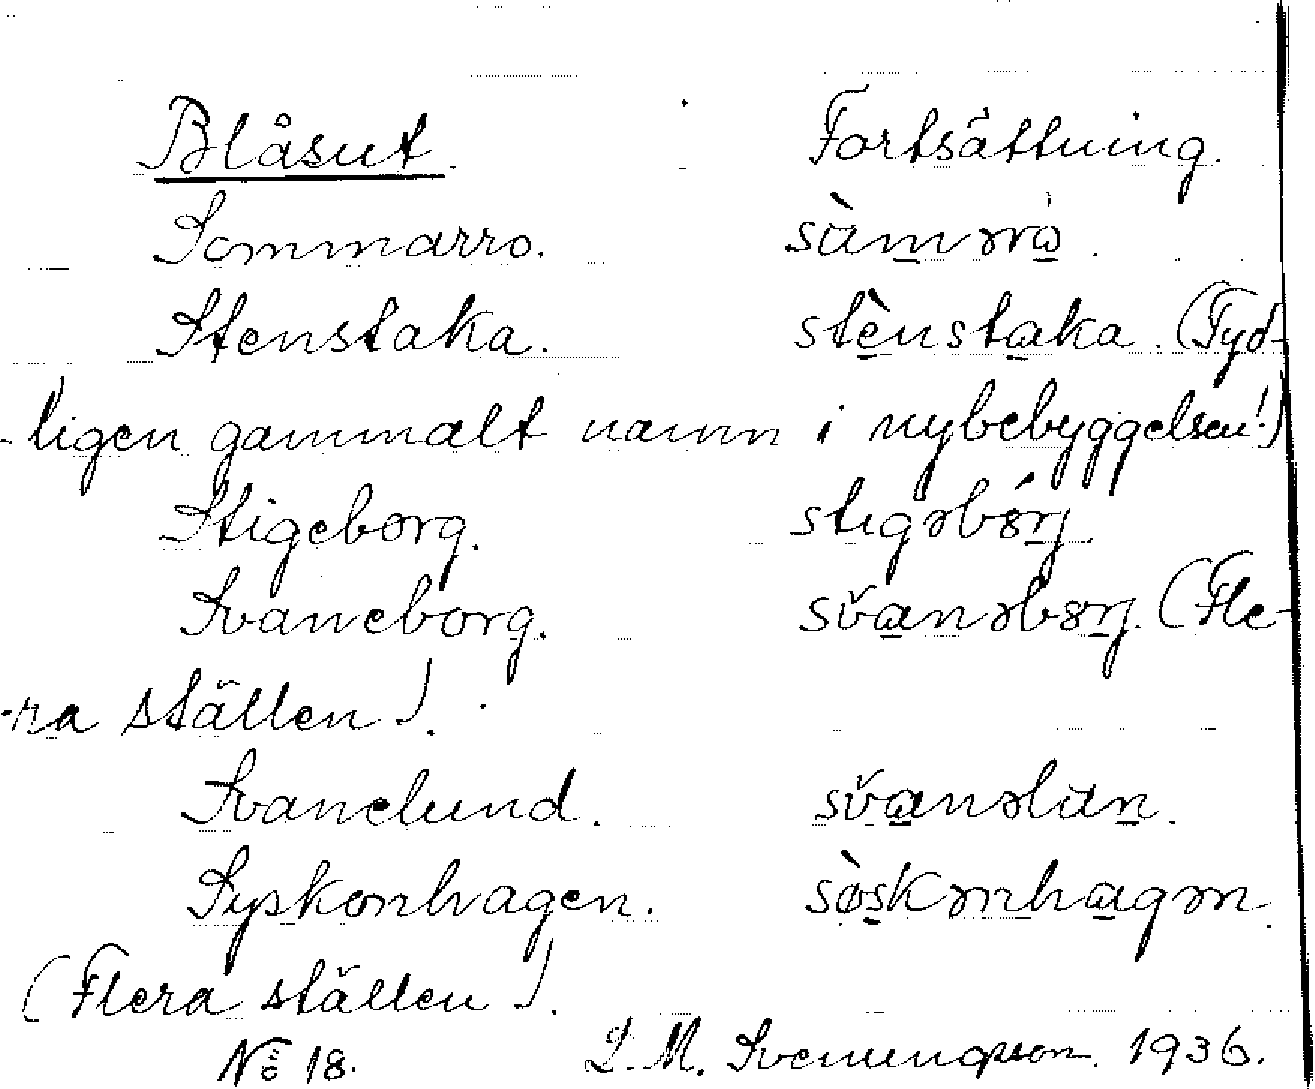 Blåsut. Fortsättning.
Sommarro. sàmərò.
Stenstaka. stènstaka. (Tyd-
-ligen gammalt namn i nybebyggelsen!)
Stigeborg. stıgəbórj.
Svaneborg. svanəbərj. (Fle-
-ra ställen).
Svanelund. svanəlun.
Syskonhagen. søskənhagən.
(Flera ställen).
No 18. L. M. Svenungsson. 1936.